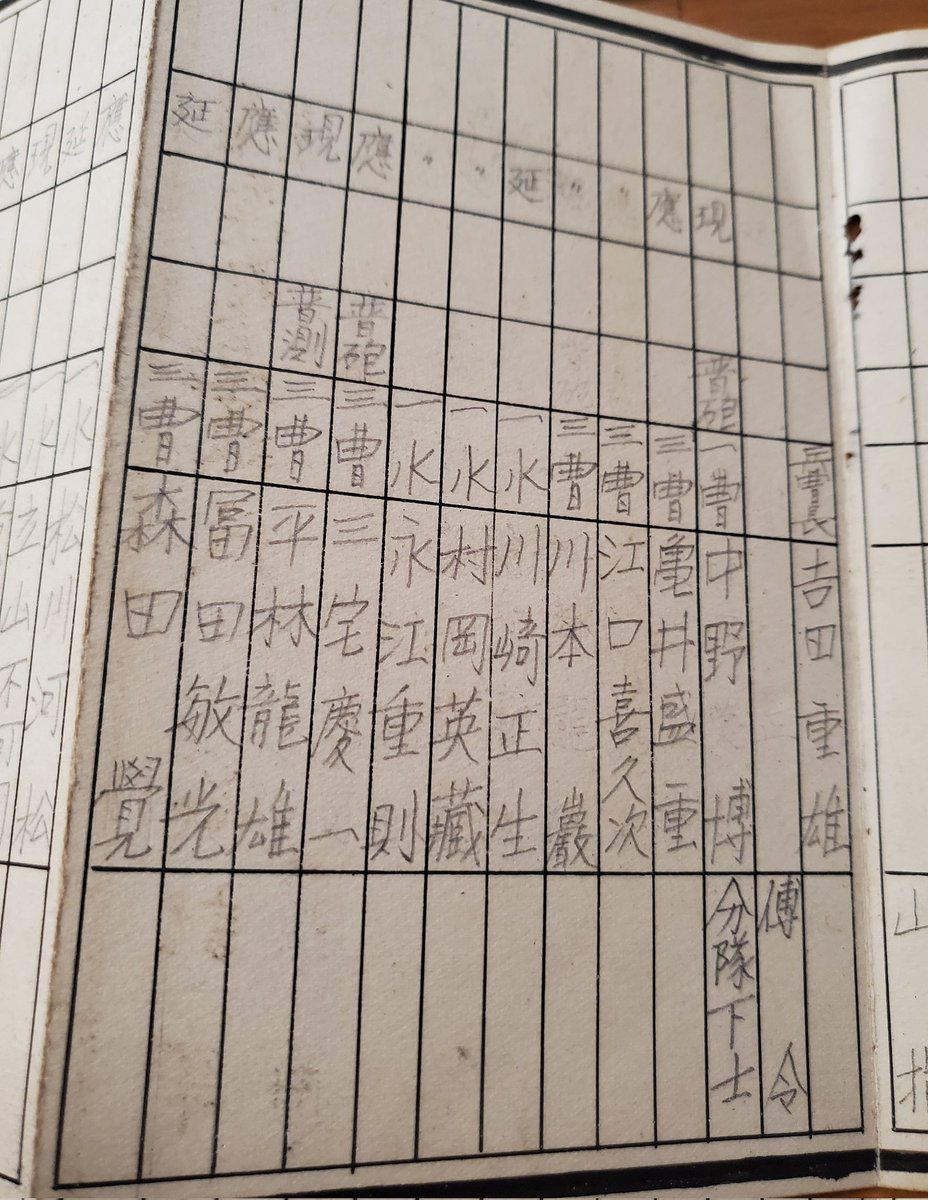 兵曹長 吉田重雄
傅令
現 普砲 一曹 中野博 分隊下士
應 三曹 亀井盛重
〃 三曹 江口喜久次
〃 三曹 川本巖
延 一水 川崎正生
〃 一水 村岡英藏
〃 一水 永江重則
應 普砲 三曹 三宅慶一
現 普測 三曹 平林龍雄
應 三曹 冨田敏光
延 三曹 森田覺
應 一水 松川河松
延 一水 立山
現
應